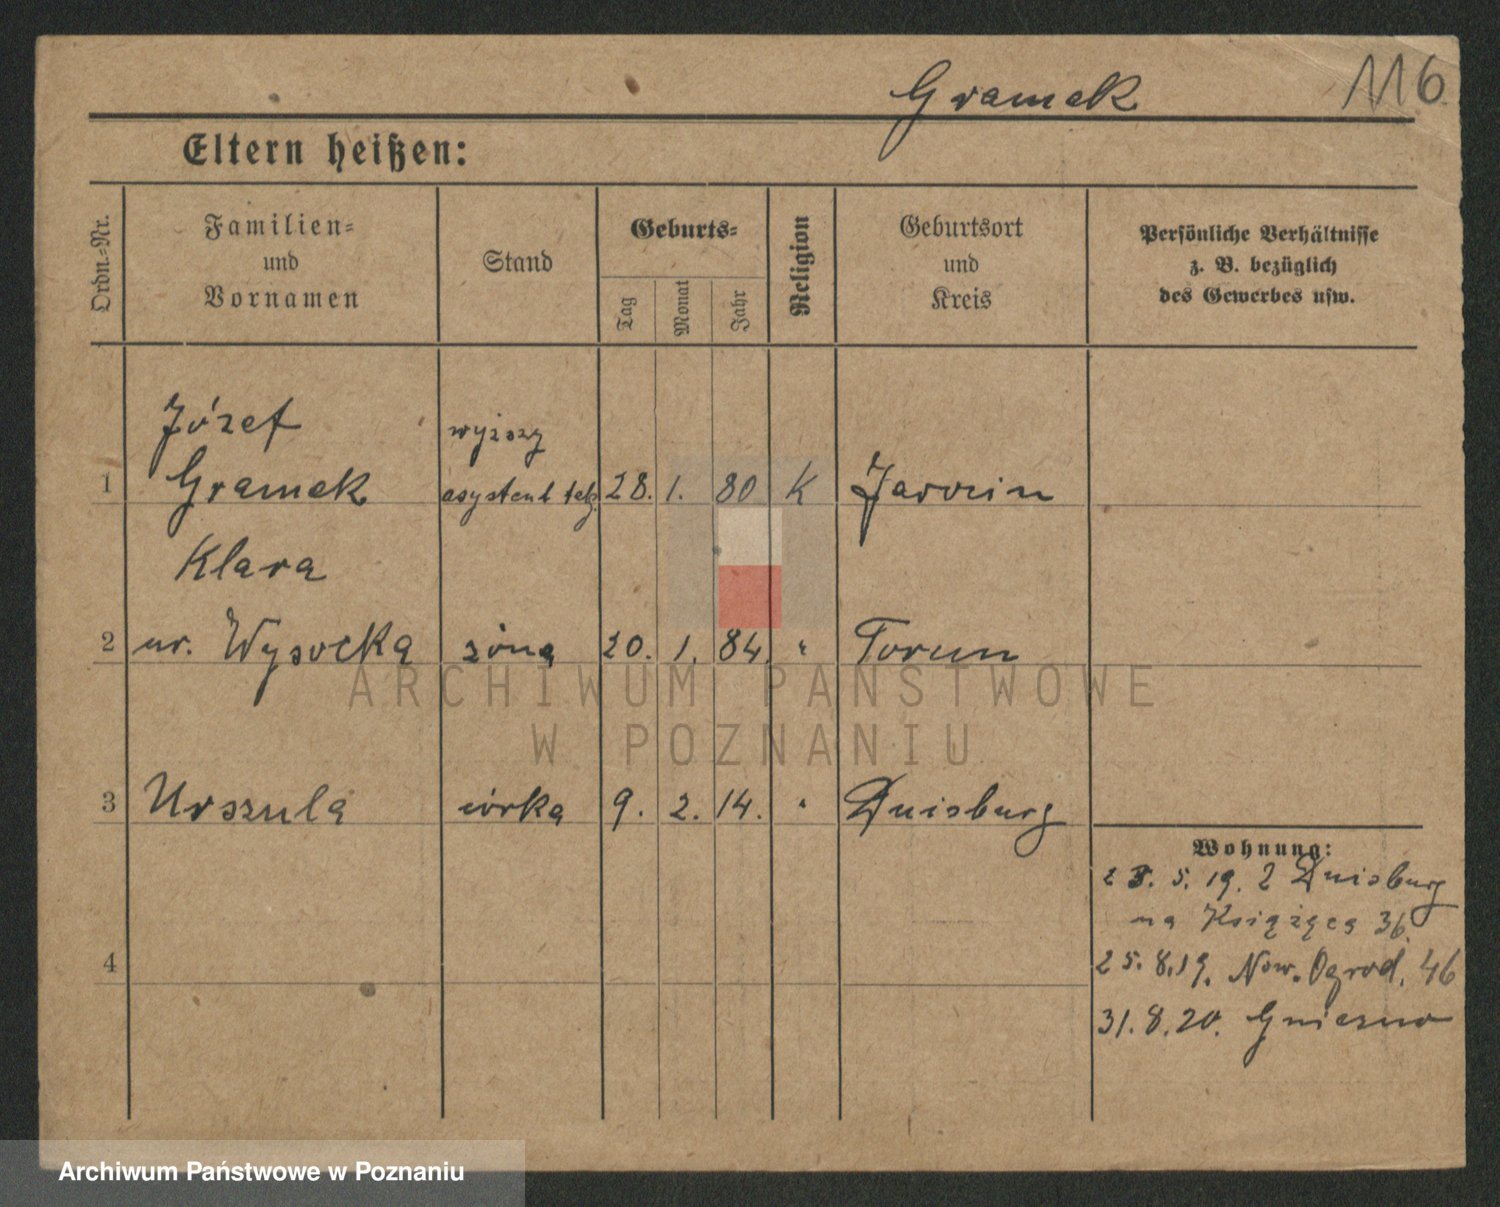 Gramek
116
Eltern heißen:
Ordn.-Nr.
Familien-
und
Vornamen
Stand
Geburts-
Tag
Monat
Jahr
Religion
Geburtsort
und
Kreis
Persönliche Verhältnisse
z. B. bezüglich
des Gewerbes usw.
Józef wyższy
1 Gramek asystent telg. 28. 1. 80 K Jarocin
Klara
2 ur. Wysocka żona 20. 1. 84. " Torun
3 Urszula córka 9. 2. 14. " Duisburg
Wohnung:
5. 19. z Duisburg
na Książęca 36.
25. 8. 19. Now. Ogrod. 46
4
31. 8. 20. Gniezno
ARCHIWUM PAŃSTWOWE
W POZNANIU
Archiwum Państwowe w Poznaniu